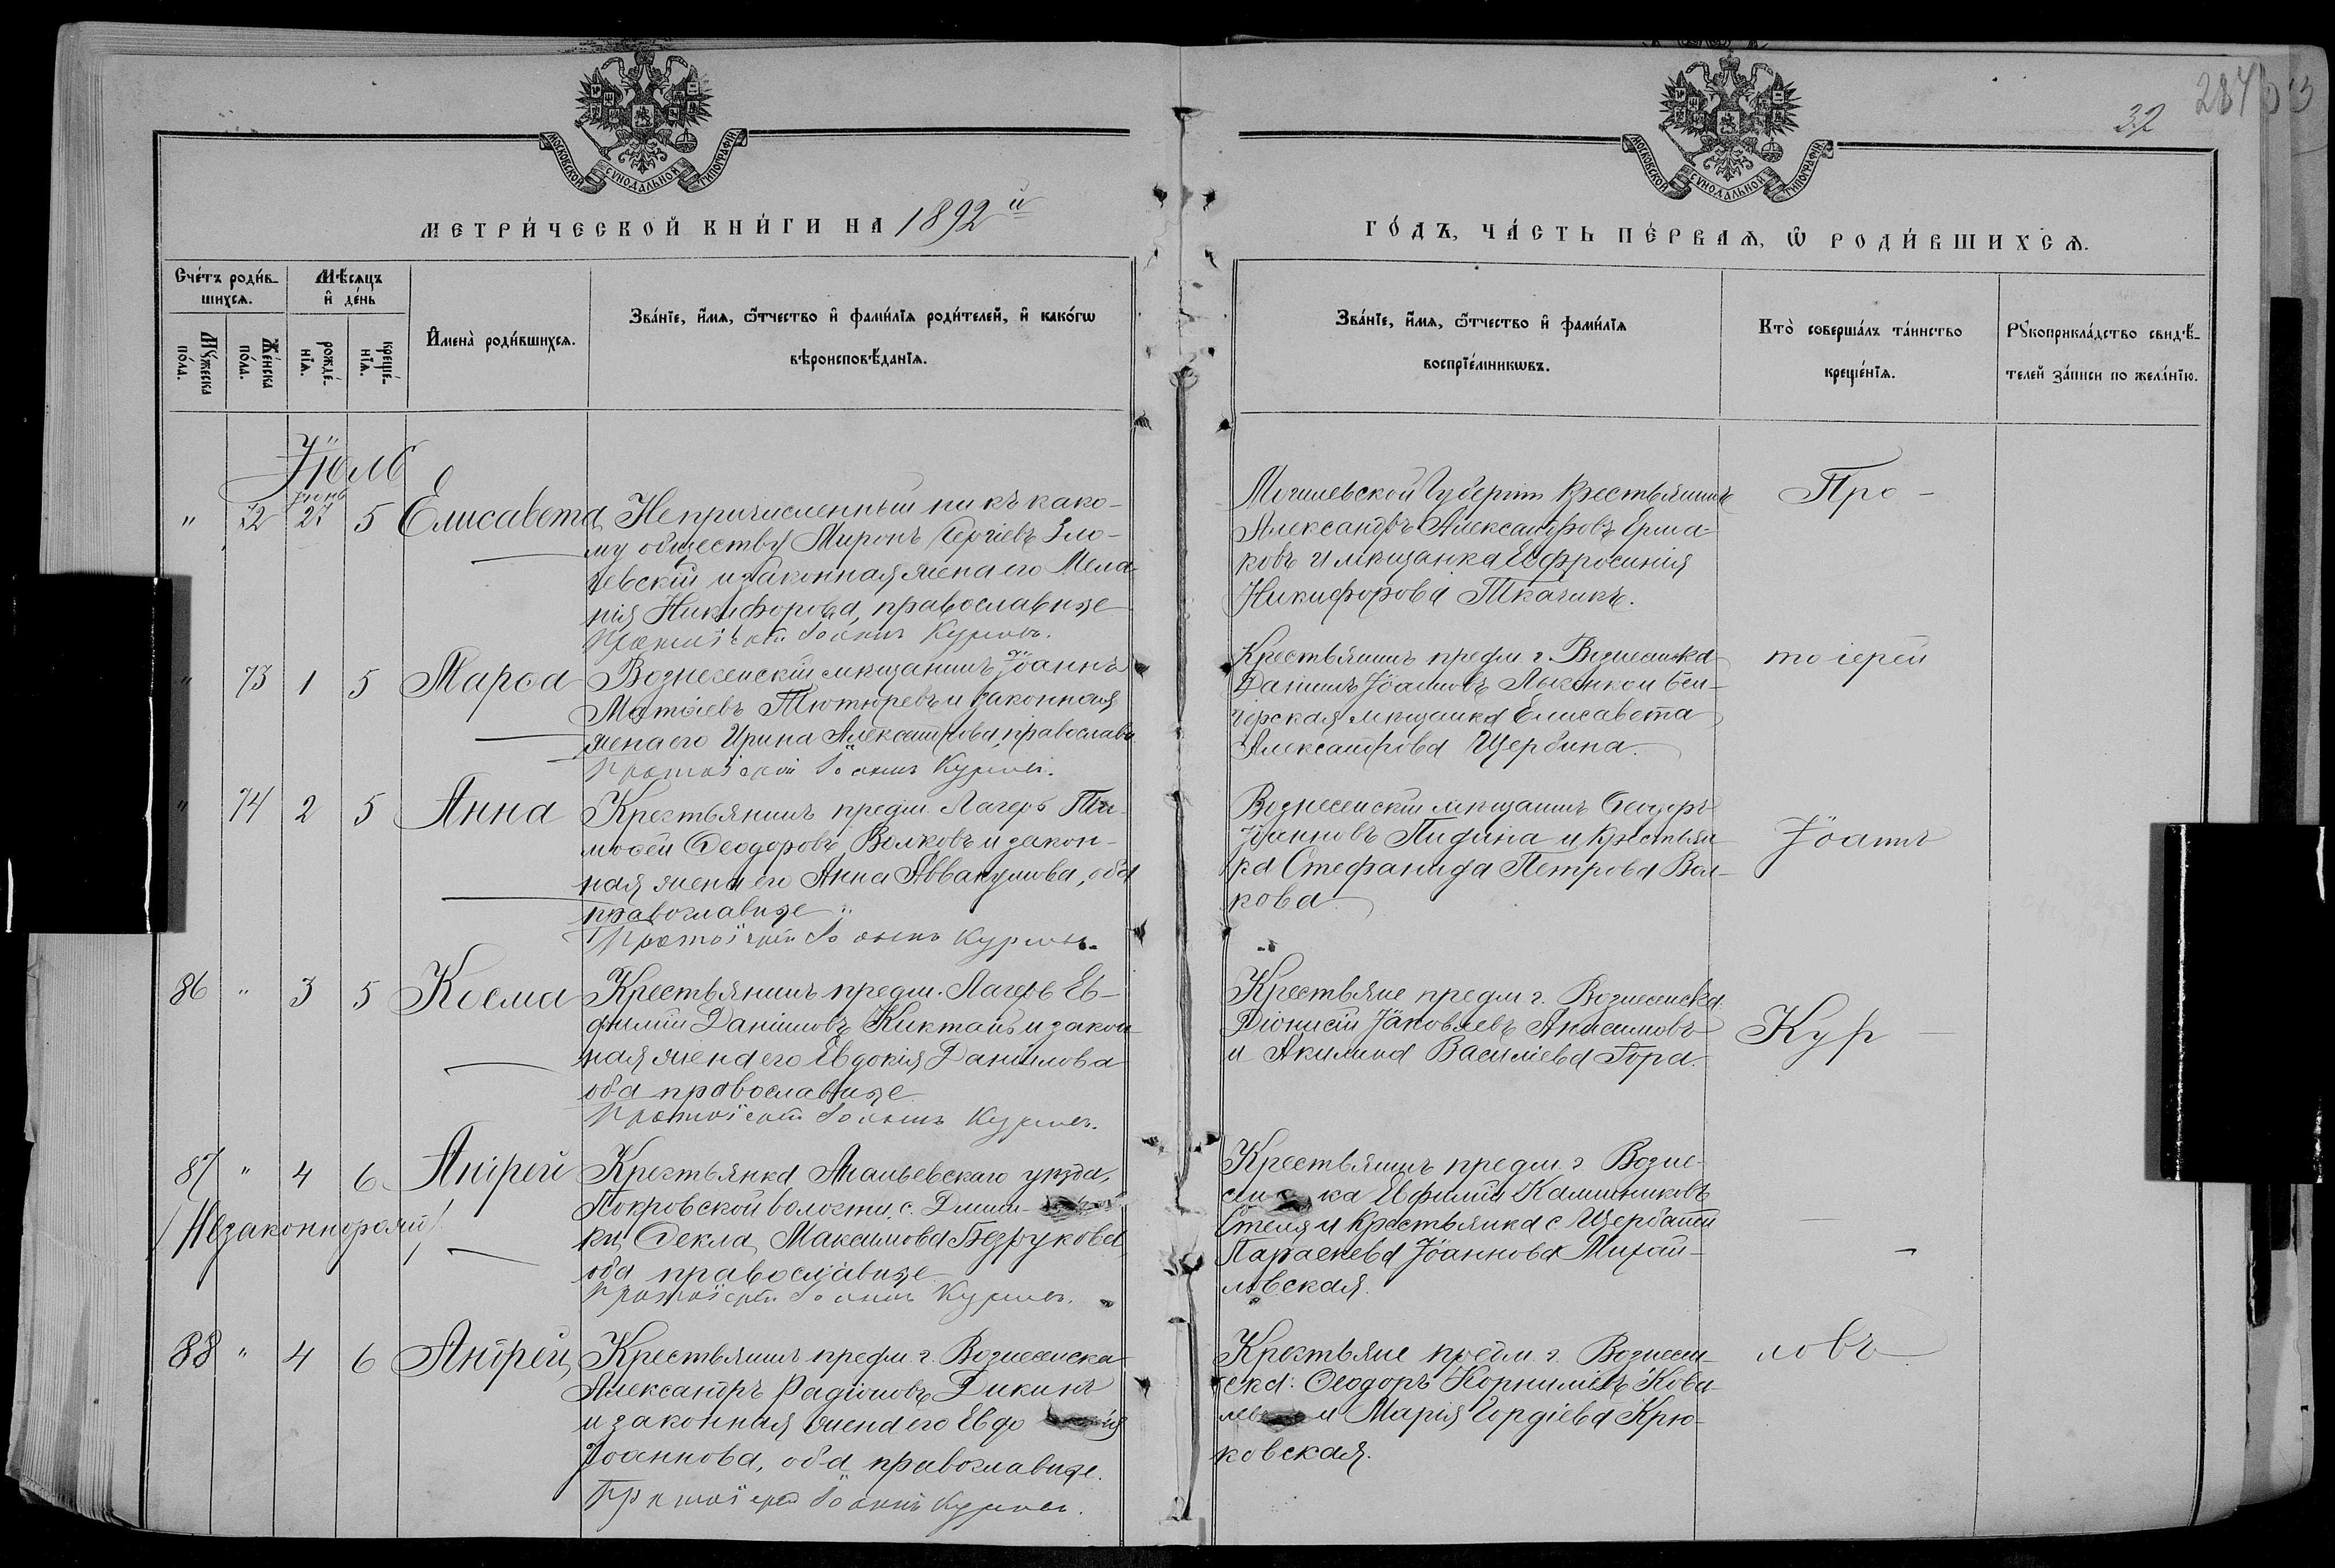 284
32
МОСКОВСКОЙ СУНОДАЛЬНОЙ ТИПОГРАФІИ
МОСКОВСКОЙ СУНОДАЛЬНОЙ ТИПОГРАФІИ
МЕТРИ́ЧЕСКОЙ КНИ́ГИ НА 1892й
ГО́ДЪ, ЧА́СТЬ ПЕ́РВАѦ, Ѡ РОДИ́ВШИХСѦ.
Сче́тъ роди́в-
шихсѧ.
Мѣ́сѧцъ
и҆ де́нь
Мꙋ́жеска
по́ла.
Же́нска
по́ла.
рожде́-
нїѧ.
креще́-
нїѧ.
И҆мена̀ роди́вшихсѧ.
Зва́нїе, и҆́мѧ, ѻ҆́тчество и҆ фами́лїѧ роди́телей, и҆ како́гѡ
вѣроисповѣ́данїѧ.
Зва́нїе, и҆́мѧ, ѻ҆́тчество и҆ фами́лїѧ
воспрїе́мникѡвъ.
Кто̀ соверша́лъ та́инство
креще́нїѧ.
Рꙋкоприкла́дство свидѣ́-
телей за́писи по жела́нїю.
Іюль
Іюнь
" 72 27 5 Елисавета Непричисленный ни къ како-
му обществу Миронъ Сергіевъ Зло-
чевскій и законная жена его Мела-
нія Никифорова, православные
Протоіерей Іоаннъ Курловъ.
Могилевской Губерніи крестьянинъ
Александръ Александровъ Ерма-
ковъ и мѣщанка Евфросинія
Никифорова Ткачикъ.
Про-
" 73 1 5 Марѳа Вознесенскій мѣщанинъ Іоаннъ
Матѳіевъ Тютюревъ и законная
жена его Ирина Александрова, православн.
Протоіерей Іоаннъ Курловъ.
Крестьянинъ предм. г. Вознесенска
Даніилъ Іоанновъ
мѣщанка Елисавета
Александрова Щербина.
тоіерей
" 74 2 5 Анна Крестьянинъ предм. Лагерь Ти-
моѳей Ѳеодоровъ Волковъ и закон-
ная жена его Анна Аввакумова, оба
православные
Протоіерей Іоаннъ Курловъ.
Вознесенскій мѣщанинъ Ѳеодоръ
Іоанновъ Пидина и крестьян
ка Стефанида Петрова Вол-
кова
Іоаннъ
86 " 3 5 Косма Крестьянинъ предм. Лагерь Ев-
фимій Даніиловъ Киктань и закон
ная жена его Евдокія Даніилова
оба православные
Протоіерей Іоаннъ Курловъ.
Крестьяне предм. г. Вознесенска
Діонисій Іаковлевъ Анисимовъ
и Акилина Василіева Гора.
Кур-
87 " 4 6 Андрей Крестьянка Ананьевскаго уѣзда,
/Незаконнорожд/
Покровской волости, с.
ки, Ѳекла Максимова Безрукова
оба православные
Протоіерей Іоаннъ Курловъ.
Крестьянинъ предм. г. Возне-
сенска Евфимій Калинниковъ
и крестьянка с. Щербаней
Параскева Іоаннова Михай-
ловская.
88 " 4 6 Андрей Крестьянинъ предм. г. Вознесенска
Александръ Радіоновъ Дикинъ
и законная жена его Евдокія
Іоаннова, оба православные.
Протоіерей Іоаннъ Курловъ.
Крестьяне предм. г. Вознесен-
ска: Ѳеодоръ Корниліевъ Кова-
левъ и Марія Гордіева Крю-
ковская.
ловъ